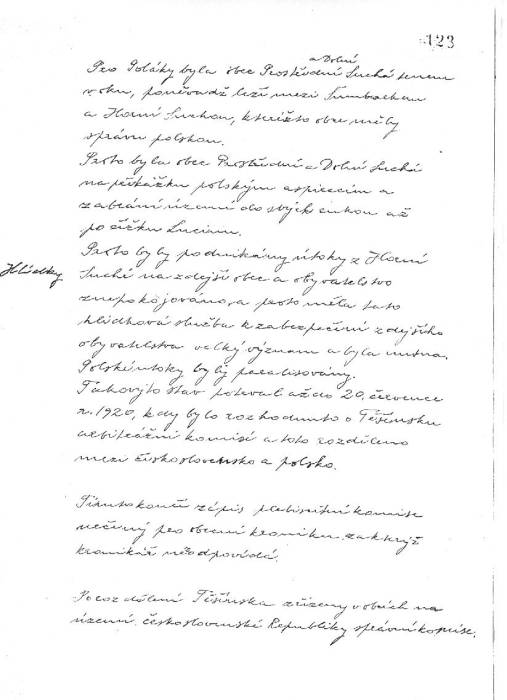 123
a Dolní
Pro Poláky byla obec Prostřední Suchá trnem
v oku, poněvadž leží mezi Šumbachem
a Horní Suchou, kterážto obce měly
správu polskou.
Proto byla obec Prostřední a Dolní Suchá
na překážku polským aspiracím a
zabrání území do svých rukou až
po říčku Lucinu.
Hlídky
Proto byly podnikány útoky z Horní
Suché na zdejší obec a obyvatelstvo
znepokojováno, a proto měla tato
hlídková služba k zabezpečení zdejšího
obyvatelstva velký význam a byla nutna.
Polské útoky byly paralisovány.
Takovýto stav potrval až do 20. července
r. 1920, kdy bylo rozhodnuto o Těšínsku
arbitrážní komisí a toto rozděleno
mezi československo a polsko.
Tímto končí zápis plebiscitní komise
určený pro obecní kroniku, za kterýž
kronikář neodpovídá.
Po rozdělení Těšínska zřízeny v obcích na
území československé Republiky správní komise.